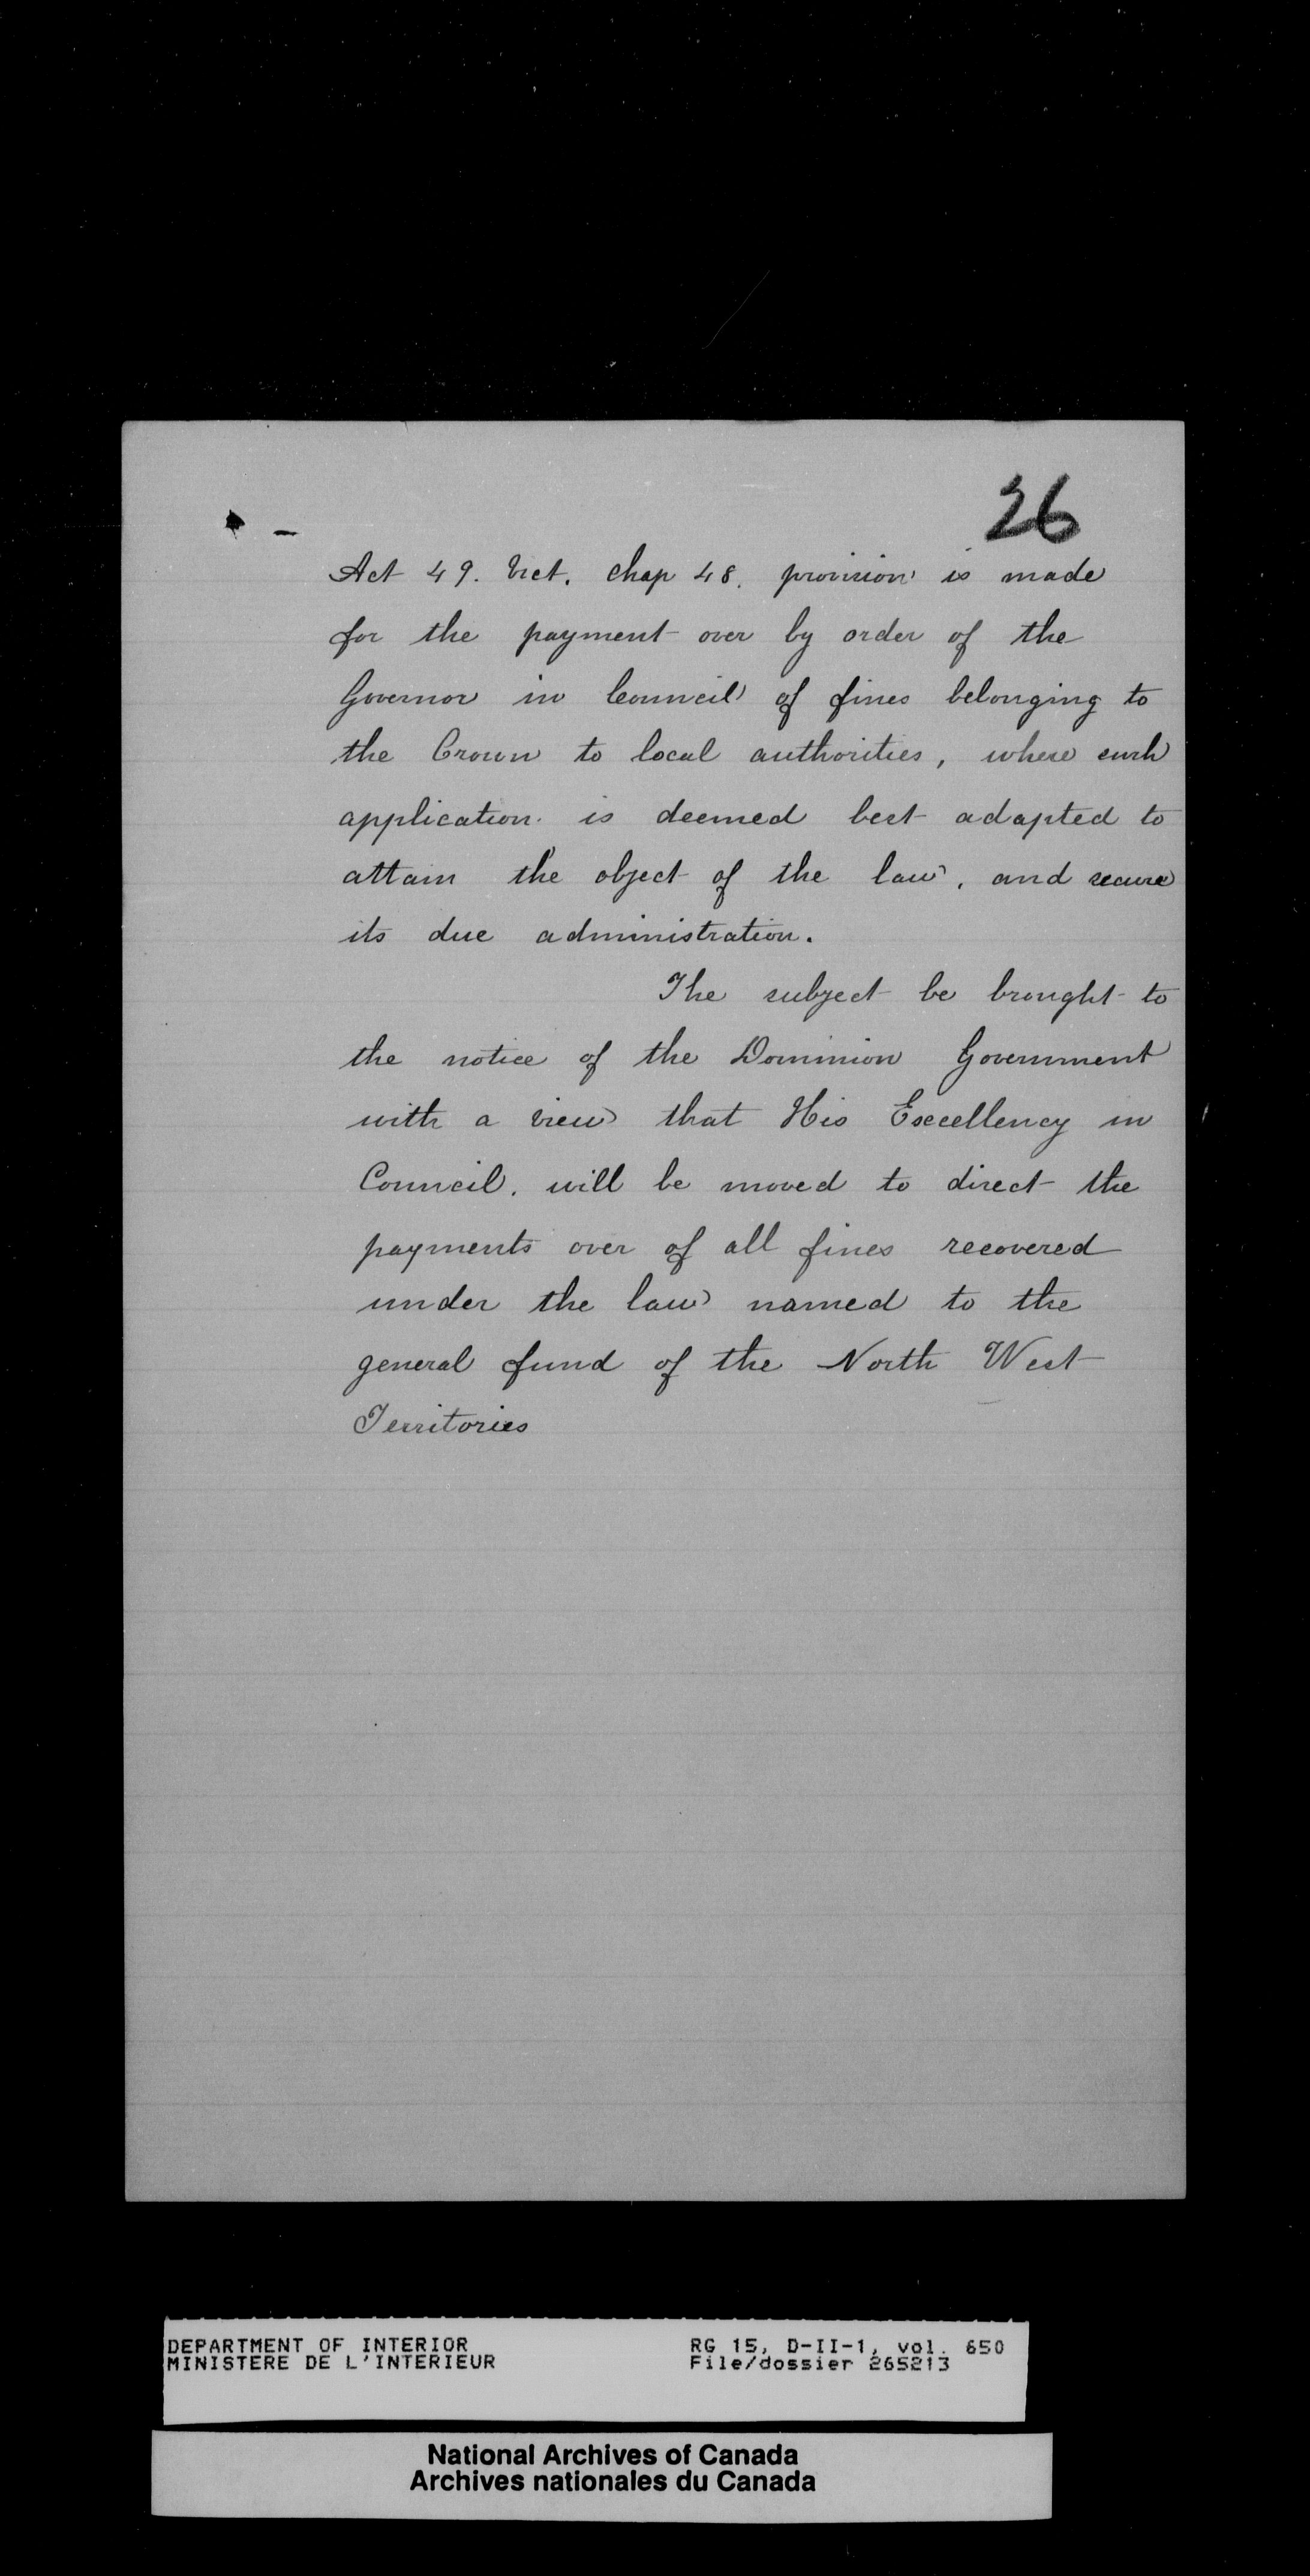 26
Act 49. Vict. Chap 48. provision is made
for the payment over by order of the
Governor in Council of fines belonging to
the Crown to local authorities, where such
application is deemed best adapted to
attain the object of the law, and secure
its due administration.
The subject be brought to
the notice of the Dominion Government
with a view that His Excellency in
Council. will be moved to direct the
payments over of all fines recovered
under the law named to the
general fund of the North West
Territories
DEPARTMENT OF INTERIOR RG 15, D-II-1, vol. 650
MINISTERE DE L'INTERIEUR File/dossier 265213
National Archives of Canada
Archives nationales du Canada